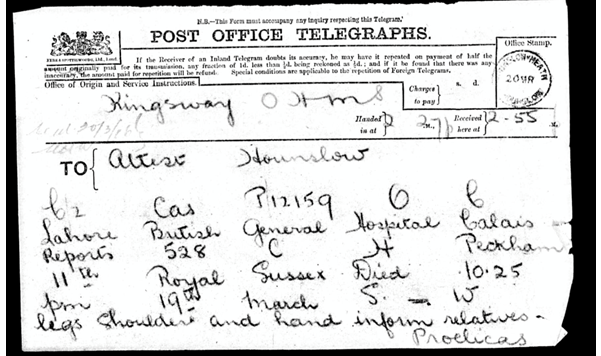 N.B.—This Form must accompany any inquiry respecting this Telegram.
POST OFFICE TELEGRAPHS.
If the Receiver of an Inland Telegram doubts its accuracy, he may have it repeated on payment of half the
amount originally paid for its transmission, any fraction of 1d. less than ½d. being reckoned as ½d.; and if it be found that there was any
inaccuracy, the amount paid for repetition will be refund. Special conditions are applicable to the repetition of Foreign Telegrams.
Office Stamp.
20 MR
Office of Origin and Service Instructions.
Kingsway O H M S
Charges to pay } s. d.
Handed in at } 2 M., Received here at } 2-55
TO { Attest Hounslow
Cas P12159 O C
Lahore British General Hospital Calais
Reports 528 C H Peckham
11th Royal Sussex Died 10.25
pm 19th March S — W
legs shoulder and hand inform relatives -